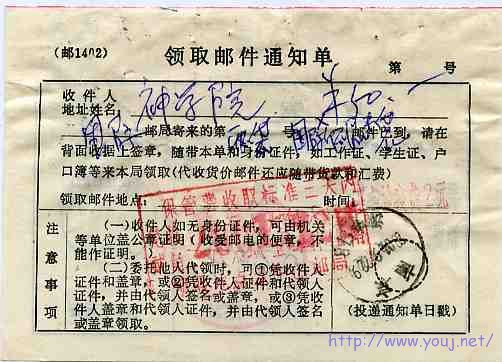 (邮1402)
领取邮件通知单
第 号
收件人
地址姓名: 神学院
邮局寄来的第 号 邮件已到,请在
背面收据上签章,随带本单和身份证件,如工作证、学生证、户
口簿等来本局领取(代收货价邮件还应随带货款和汇费)
领取邮件地点: 时间:
保管费收取标准三天内
注意事项
(一)收件人如无身份证件,可由机关
等单位盖公章证明(收受邮电的便章,不
能作证明)。
(二)委托他人代领时,可①凭收件人
证件和盖章,或②凭收件人证件和代领人
证件,并由代领人签名或盖章,或③凭收
件人盖章和代领人证件,并由代领人签名
或盖章领取。
(投递通知单日戳)
http://www.youj.net/